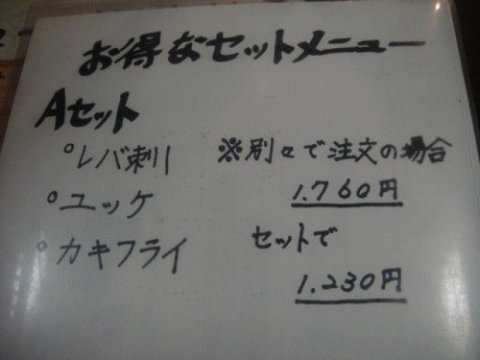 お得なセットメニュー
Aセット
°レバ刺し
°ユッケ
°カキフライ
※別々で注文の場合
1.760円
セットで
1.230円